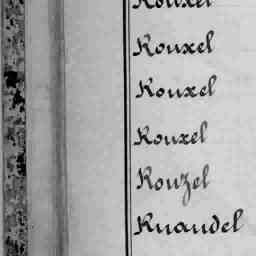 Rouxel
Rouxel
Rouxel
Rouxel
Rouzel
Ruaudel